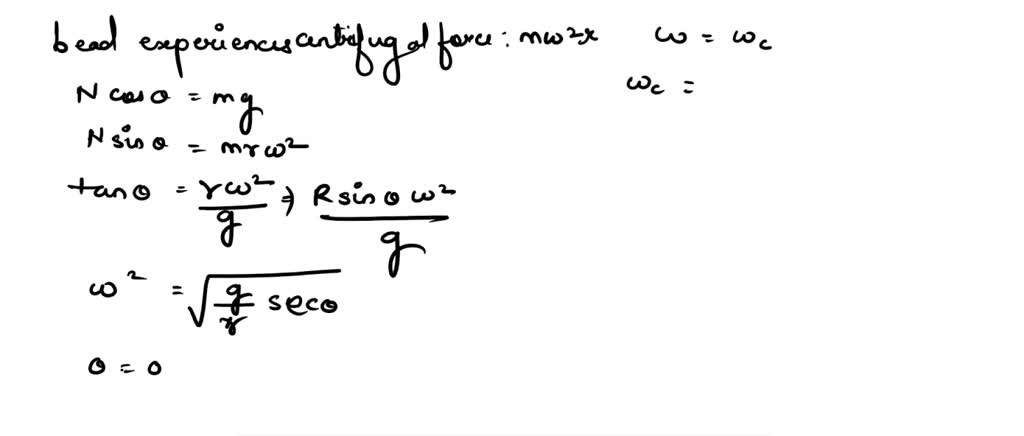 bead experiences centrifugal force : mω²x ω = ωc
ωc =
N cos θ = mg
N sin θ = mrω²
tan θ = rω²/g ⇒ R sin θ ω²/g
ω² = √(g/r secθ)
θ = 0